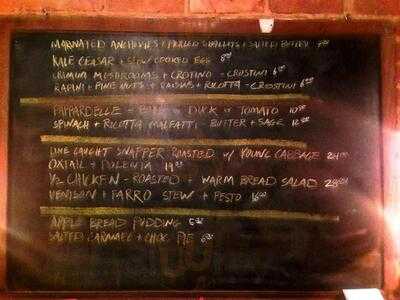 MARINATED ANCHOVIES + PICKLED SHALLOTS + SALTED BUTTER 7
KALE CEASAR + SLOW COOKED EGG 8
CRIMINI MUSHROOMS + CROTINO - CROSTINI 6
RAPINI + PINE NUTS + RAISINS + RICOTTA - CROSTINI 6
PAPPARDELLE - DUCK + TOMATO
SPINACH + RICOTTA MALFATTI - BUTTER + SAGE
LINE CAUGHT SNAPPER ROASTED W/ YOUNG CABBAGE 24
OXTAIL + POLENTA 19
1/2 CHICKEN - ROASTED + WARM BREAD SALAD
VENISON + FARRO STEW + PESTO 16
APPLE BREAD PUDDING 6
SALTED CARAMEL + CHOC PIE 6